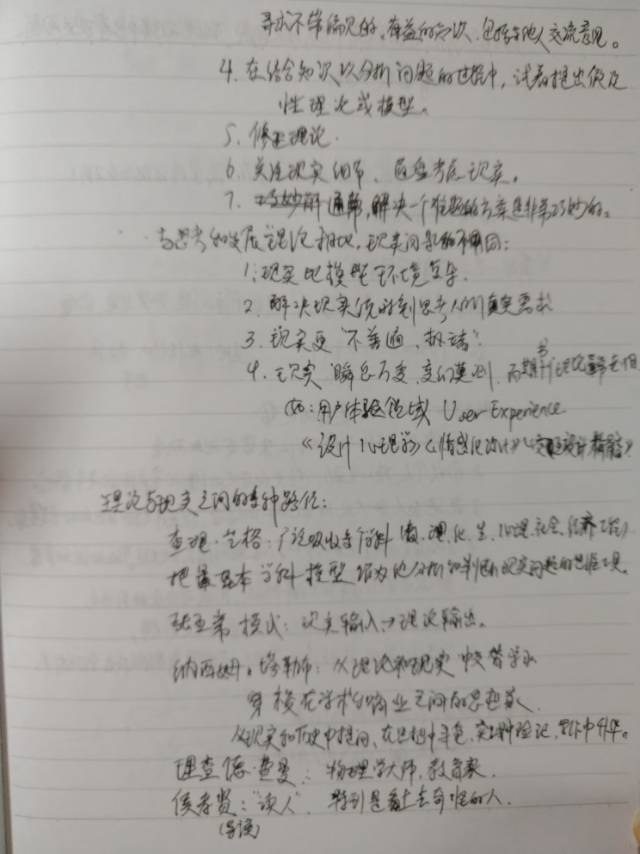 寻求不带偏见的、有益的知识，包括与他人交流意见。
4. 在结合知识以分析问题的过程中，试着提出假设
性理论或模型。
5. 修正理论.
6. 关注现实细节、反复考虑现实。
7. 解决一个难题的方案是非常巧妙的。
与思考的发展理论相比，现实问题的不同：
1. 现实比模型环境复杂.
2. 解决现实优时刻思考人们真实需求
3. 现实更"不普遍、
4. 现实"瞬息万变、变幻莫测、
如：用户体验领域 User Experience
《设计心理学》《情感化设计》
理论与现实之间的多种路径：
查理·芒格：广泛吸收各学科（数、理、化、生、心理、社会、经济、工程）
把最基本学科模型作为他分析和判断现实问题的思维工具.
张五常模式：现实输入→理论输出。
纳西姆·塔勒布：从理论和现实中交替学习
穿梭在学术和商业之间的思想家.
从现实和历史中提问、在思想中寻色、
理查德·费曼：物理学大师、教育家.
侯孝贤："读人"、特别是
(导演)